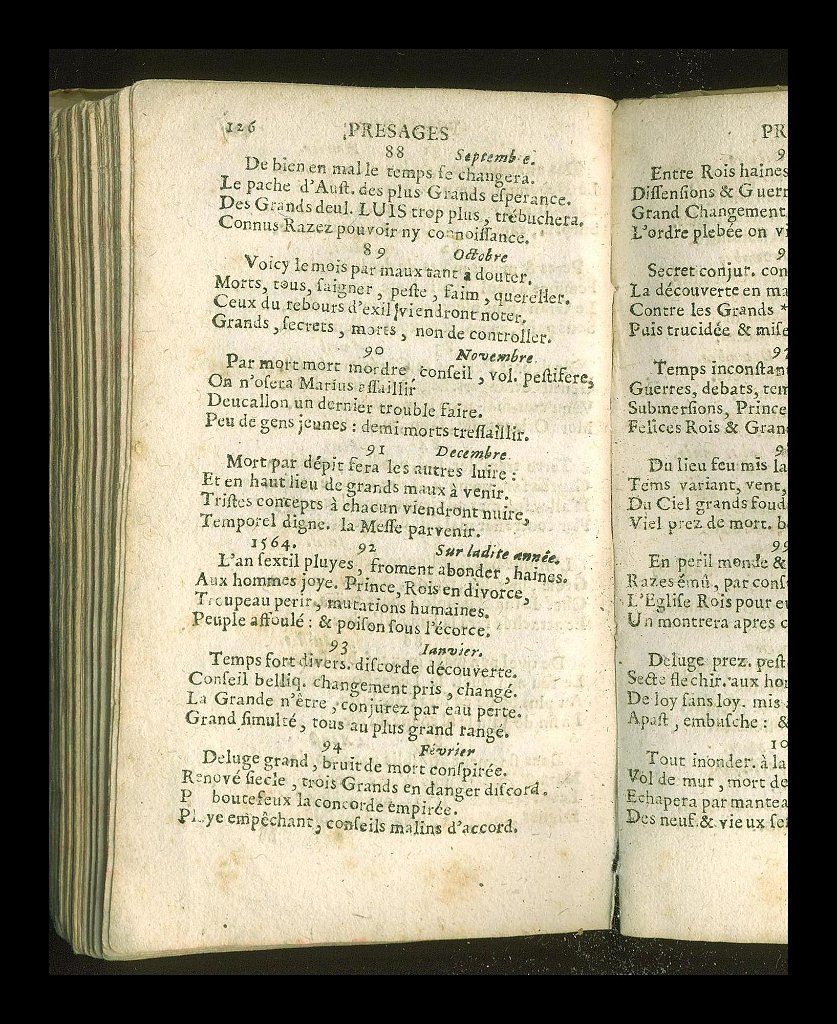 126 PRESAGES
88 Septembre.
De bien en mal le temps ſe changera.
Le pache d'Auſt. des plus Grands eſperance.
Des Grands deul. LUIS trop plus, trébuchera.
Connus Razez pouvoir ny connoiſſance.
89 Octobre
Voicy le mois par maux tant à douter.
Morts, tous, ſaigner, peſte, faim, quereller.
Ceux du rebours d'exil viendront noter.
Grands, ſecrets, morts, non de controller.
90 Novembre
Par mort mort mordre, conſeil, vol. peſtifere,
On n'oſera Marius aſſaillir
Deucallon un dernier trouble faire.
Peu de gens jeunes : demi morts treſſaillir.
91 Decembre
Mort par dépit fera les autres luire :
Et en haut lieu de grands maux à venir.
Triſtes concepts à chacun viendront nuire,
Temporel digne. la Meſſe parvenir.
1564. 92 Sur ladite année.
L'an ſextil pluyes, froment abonder, haines.
Aux hommes joye. Prince, Rois en divorce,
Troupeau perir, mutations humaines.
Peuple affoulé : & poiſon ſous l'écorce.
93 Ianvier.
Temps fort divers. diſcorde découverte.
Conſeil belliq. changement pris, changé.
La Grande n'être, conjurez par eau perte.
Grand ſimulté, tous au plus grand rangé.
94 Février
Deluge grand, bruit de mort conſpirée.
Renové ſiecle, trois Grands en danger diſcord.
P boutefeux la concorde empirée.
Pluye empêchant, conſeils malins d'accord.
PR
9
Entre Rois haines
Diſſenſions & Guerr
Grand Changement
L'ordre plebée on vi
9
Secret conjur. con
La découverte en ma
Contre les Grands *
Puis trucidée & miſe
97
Temps inconſtan
Guerres, debats, tem
Submerſions, Prince
Felices Rois & Gran
9
Du lieu feu mis la
Tems variant, vent,
Du Ciel grands foud
Viel prez de mort. b
99
En peril monde &
Razes émû, par conſ
L'Egliſe Rois pour e
Un montrera apres c
Deluge prez. peſt
Secte flechir. aux ho
De loy ſans loy. mis
Apaſt, embuſche : &
10
Tout inonder. à la
Vol de mur, mort de
Echapera par mantea
Des neuf & vieux ſe